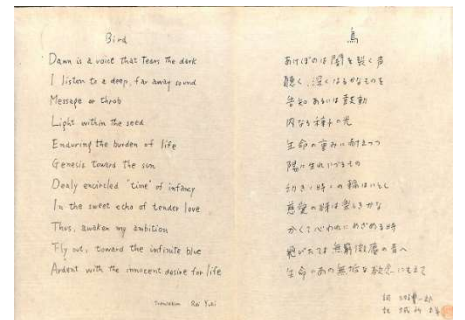 Bird
Dawn is a voice that tears the dark
I listen to a deep, far away sound
Message or throb
Light within the seed
Enduring the burden of life
Genesis toward the sun
Dealy encircled "time" of infancy
In the sweet echo of tender love
Thus, awaken my ambition
Fly out, toward the infinite blue
Ardent with the innocent desire for life
Rei Yuki
鳥
あけぼのは闇を裂く声
聴く、深くはるかなものを
告知あるいは鼓動
内なる種子の光
生命の重みに耐えつつ
陽に生れいづるもの
慈愛の
かくて心われにめざめる時
生命への無垢な